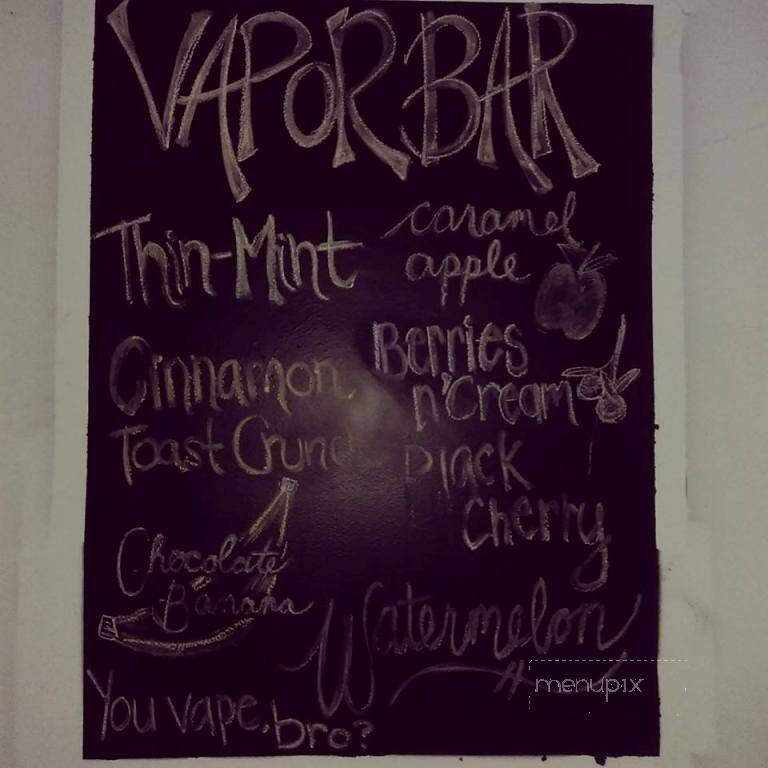 VAPOR BAR
Thin-Mint
caramel
apple
Cinnamon
Toast Crunch
Berries
n'Cream
Black
Cherry
Chocolate
Banana
Watermelon
You vape, bro?
menupix